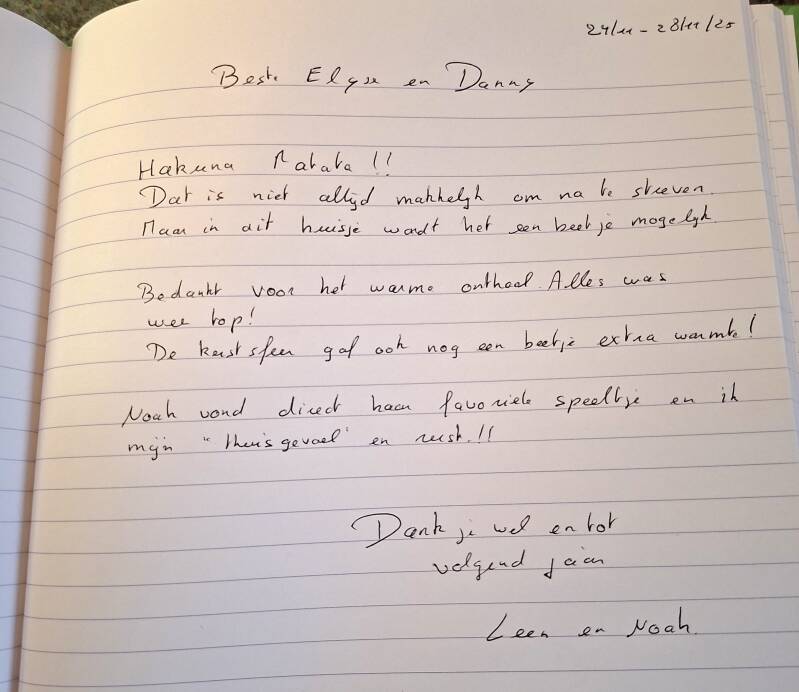 24/11 - 28/11/25
Beste Elyse en Danny
Hakuna Matata !!
Dat is niet altijd makkelijk om na te streven.
Maar in dit huisje wordt het een beetje mogelijk.
Bedankt voor het warme onthaal. Alles was
weer top!
De kerstsfeer gaf ook nog een beetje extra warmte!
Noah vond direct haar favoriete speeltje en ik
mijn "thuisgevoel" en rust.!!
Dank je wel en tot
volgend jaar
Leen en Noah.